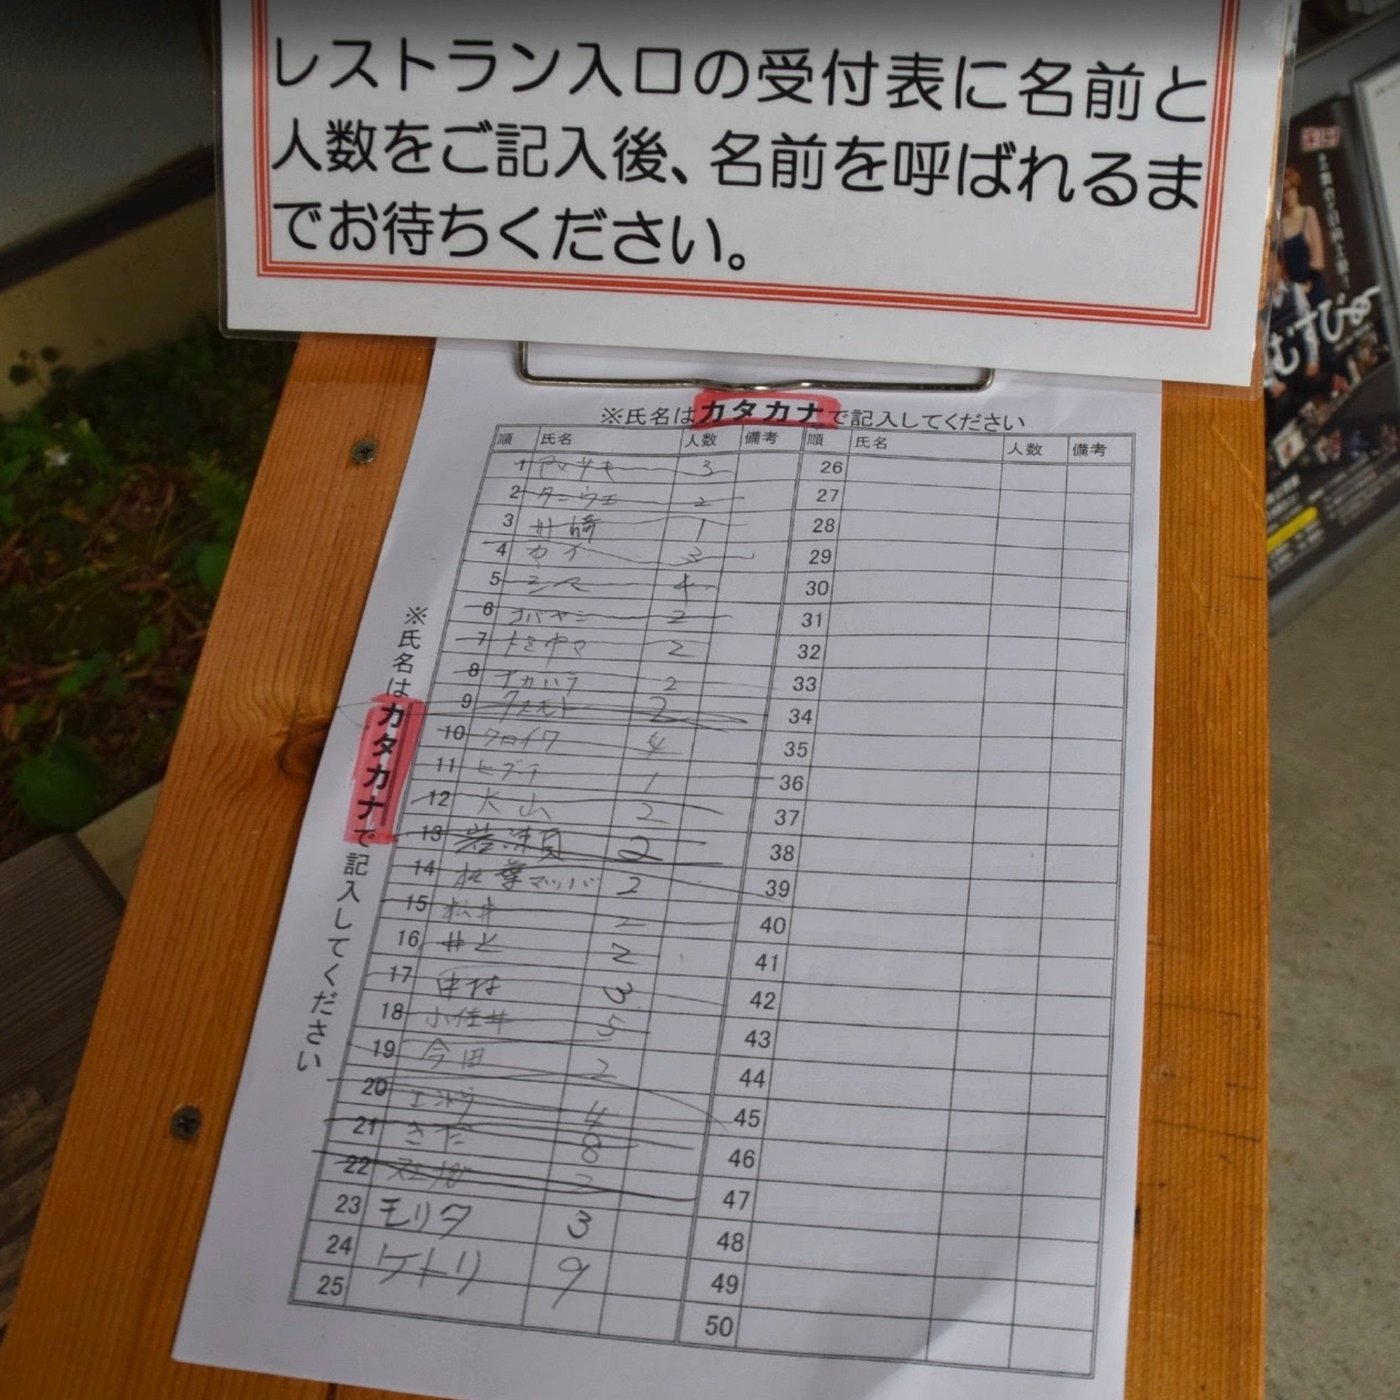 レストラン入口の受付表に名前と
人数をご記入後、名前を呼ばれるま
でお待ちください。
むすびゅ
※氏名はカタカナで記入してください
※氏名はカタカナで記入してください
順 氏名 人数 備考 順 氏名 人数 備考
1 ヤマサキ 3 26
2 タニウエ 2 27
3 井崎 1 28
4 カイ 3 29
5 4 30
6 コバヤシ 2 31
7 トミヤマ 2 32
8 ナカハラ 2 33
9 2 34
10 クロイワ 4 35
11 ヒグチ 1 36
12 大山 2 37
13 岩瀬 2 38
14 マツバ 2 39
15 松井 2 40
16 井上 2 41
17 中村 3 42
18 小佐井 5 43
19 今田 2 44
20 4 45
21 きだ 8 46
22 2 47
23 モリタ 3 48
24 ケトリ 9 49
25 50